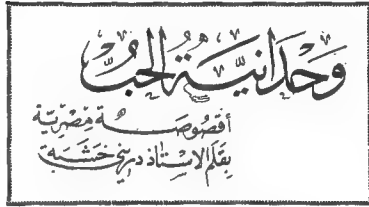 وَحْدَانِيَّةُ الحُبِّ
أقصُوصَة مِصْرِيَّة
بِقَلَمِ الأسْتَاذ دريني خَشَبَة